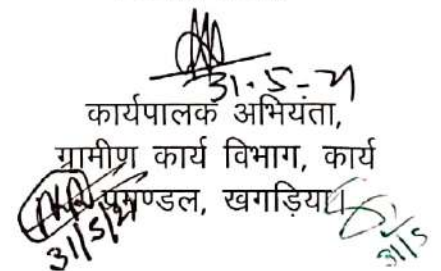 31.5.21
कार्यपालक अभियंता,
ग्रामीण कार्य विभाग, कार्य
प्रमण्डल, खगड़िया।
31/5/21
31/5